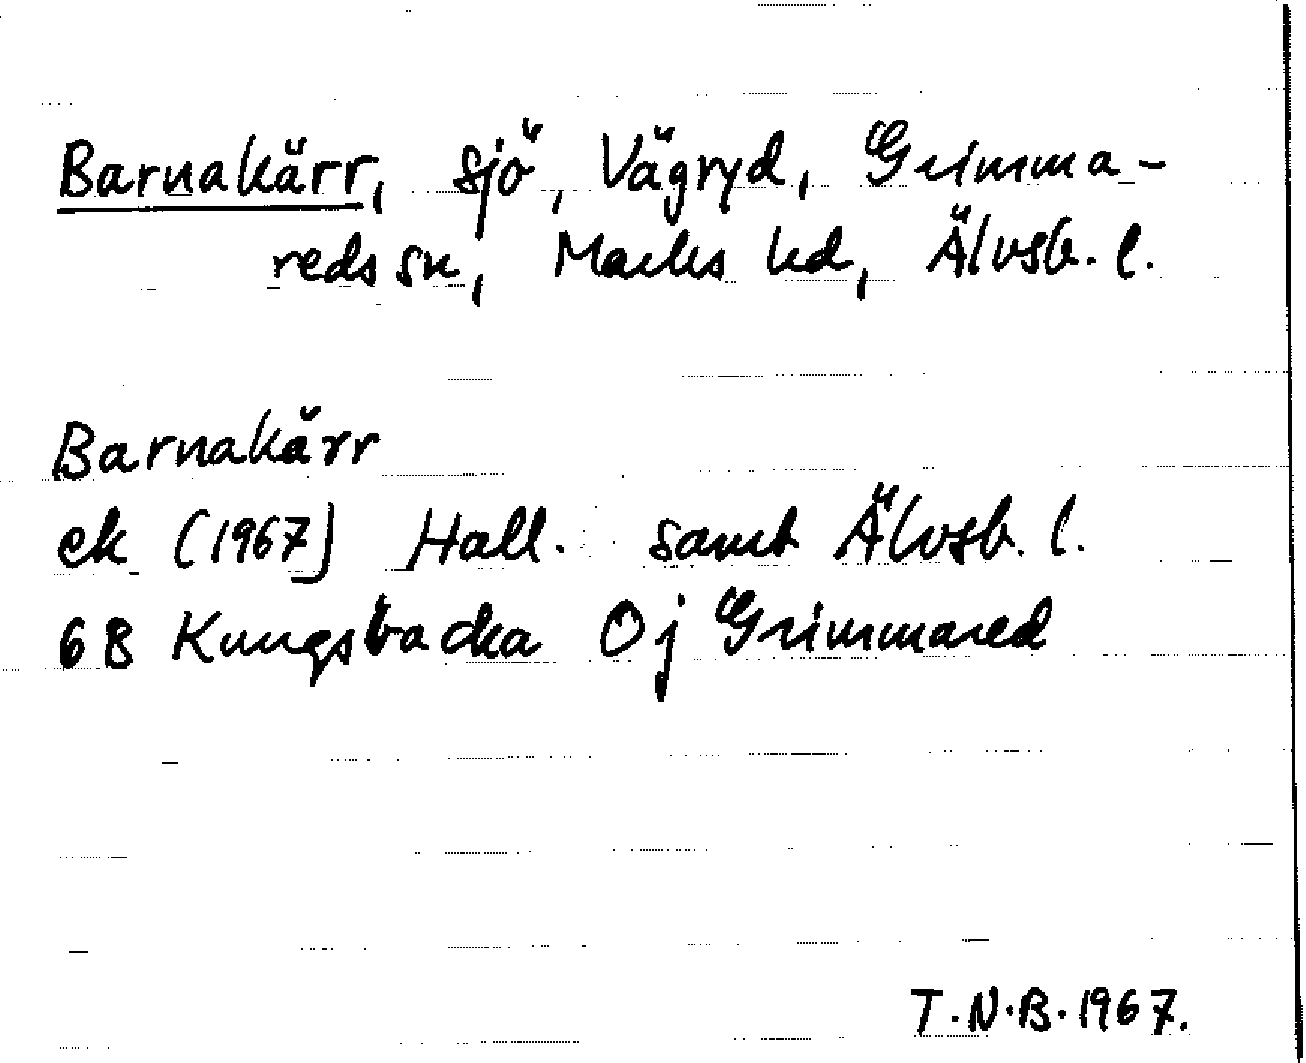 Barnakärr, sjö, Vägryd, Grimma-
reds sn, Marks hd, Älvsb. l.
Barnakärr
ek (1967) Hall. samt Älvsb. l.
6B Kungsbacka Oj Grimmared
T.N.B. 1967.